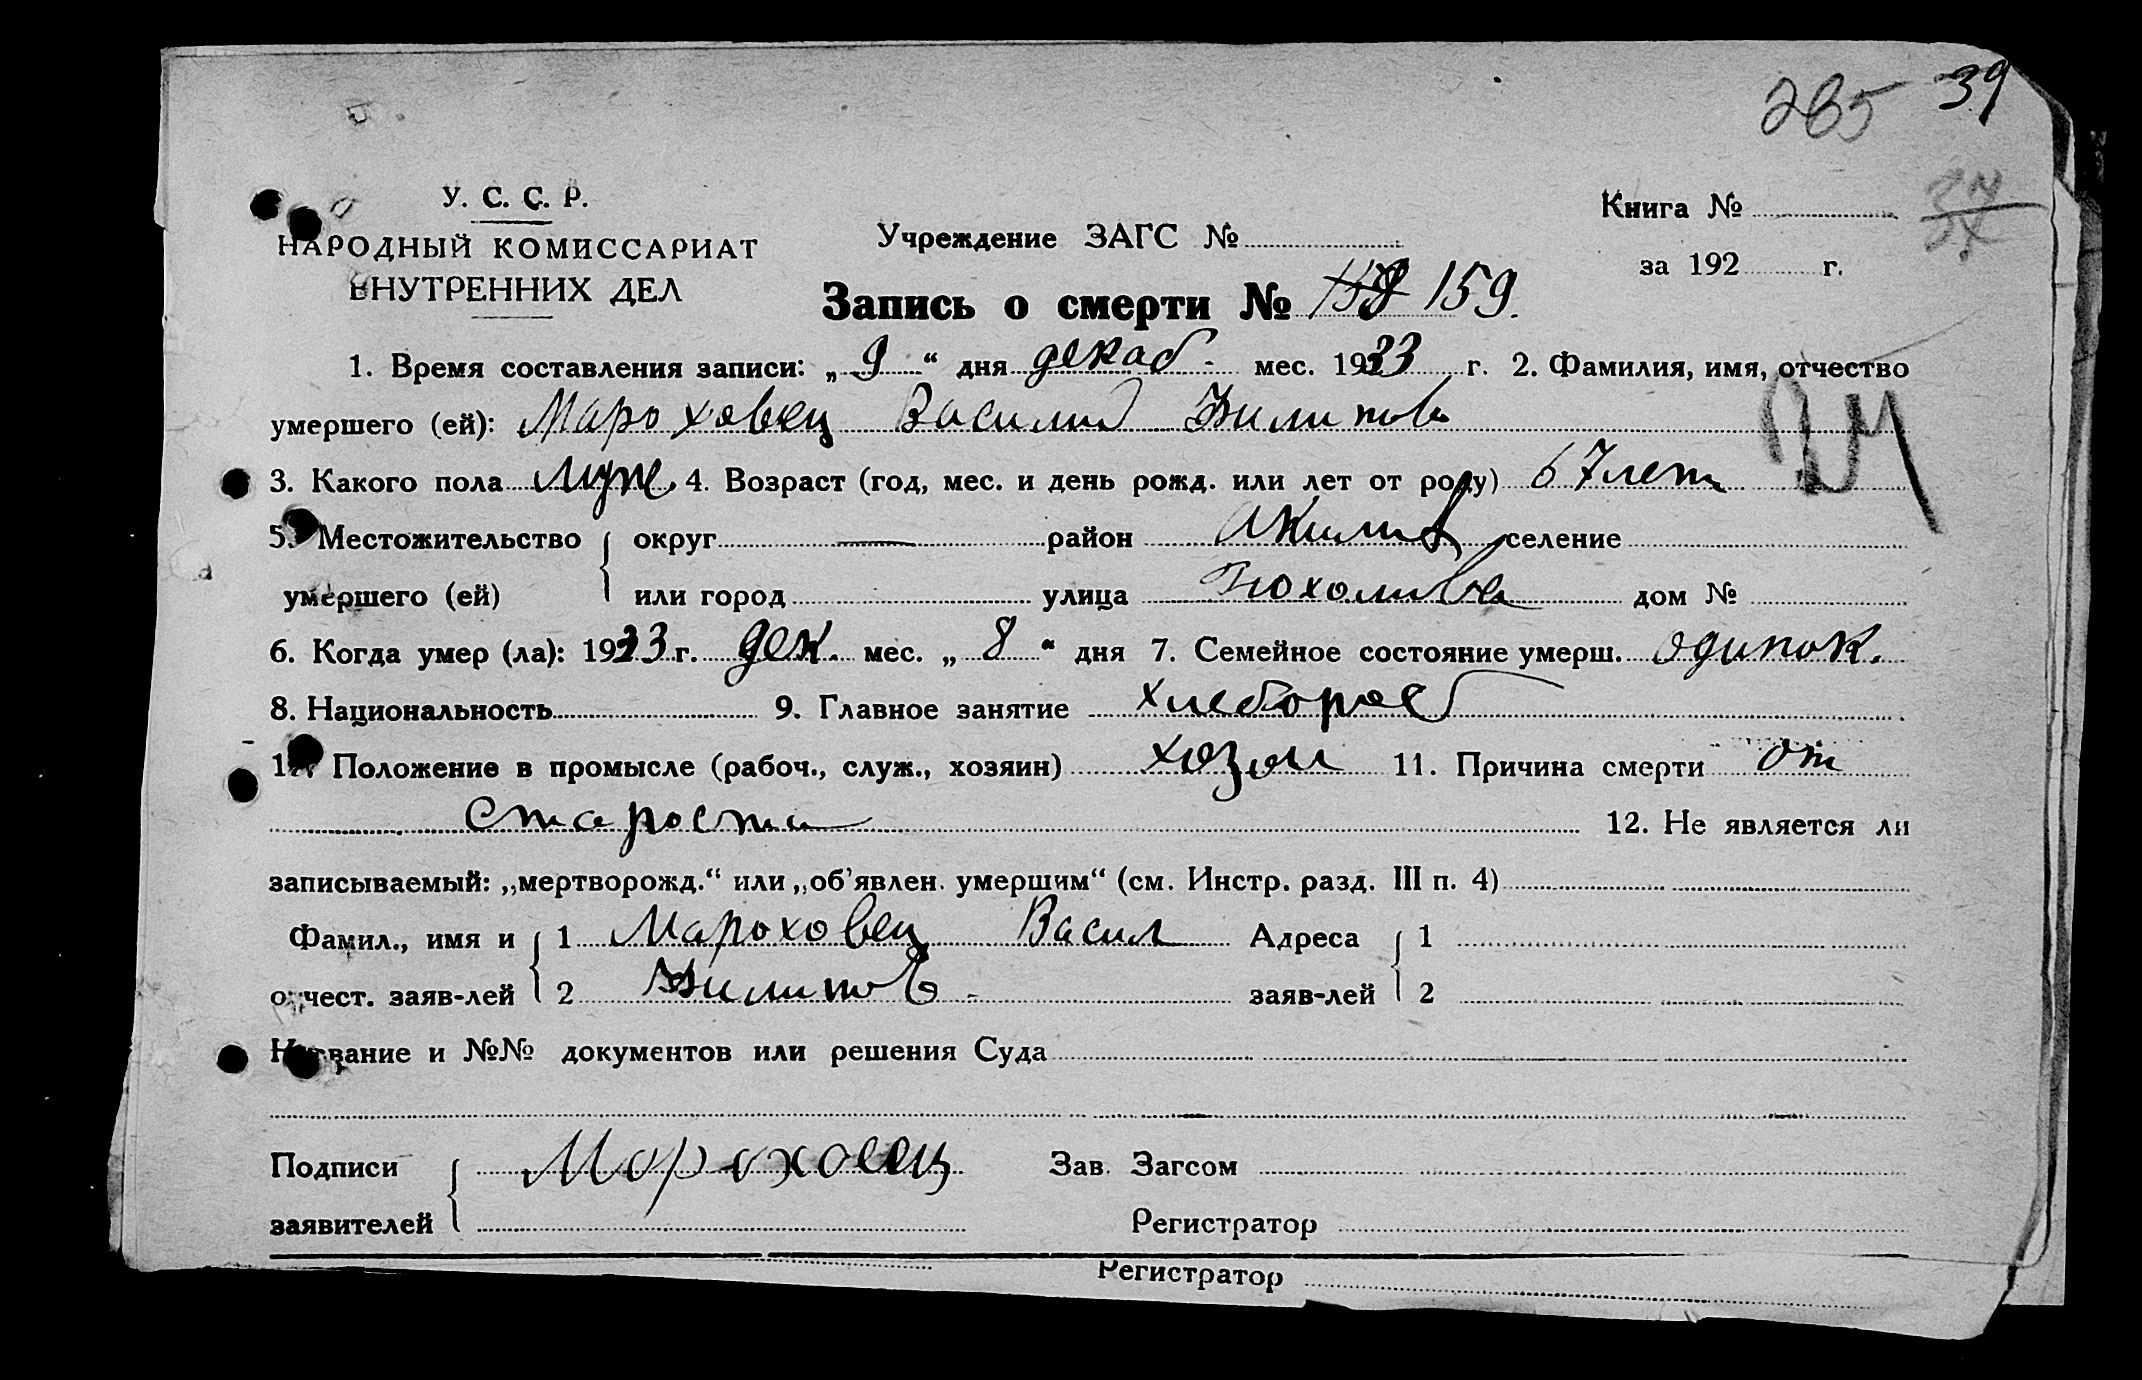 285 39
У. С. С. Р.
Книга №
НАРОДНЫЙ КОМИССАРИАТ
Учреждение ЗАГС №
ВНУТРЕННИХ ДЕЛ
за 192 г.
Запись о смерти № 159.
1. Время составления записи: „ 9 “ дня декаб. мес. 1933 г. 2. Фамилия, имя, отчество
умершего (ей): Мароховец Василий Филипов
3. Какого пола муж 4. Возраст (год, мес. и день рожд. или лет от роду) 67 лет
5. Местожительство округ — район Акимов селение
умершего (ей) или город улица дом №
6. Когда умер (ла): 1933 г. дек. мес. „ 8 “ дня 7. Семейное состояние умерш. одинок.
8. Национальность 9. Главное занятие хлебороб
10. Положение в промысле (рабоч., служ., хозяин) хозяи 11. Причина смерти от
старости 12. Не является ли
записываемый: „мертворожд.“ или „об’явлен. умершим“ (см. Инстр. разд. III п. 4)
Фамил., имя и 1 Мароховец Васил Адреса 1
отчест. заяв-лей 2 Филипов - заяв-лей 2
Название и №№ документов или решения Суда
Подписи Мороховец Зав. Загсом
заявителей Регистратор
Регистратор